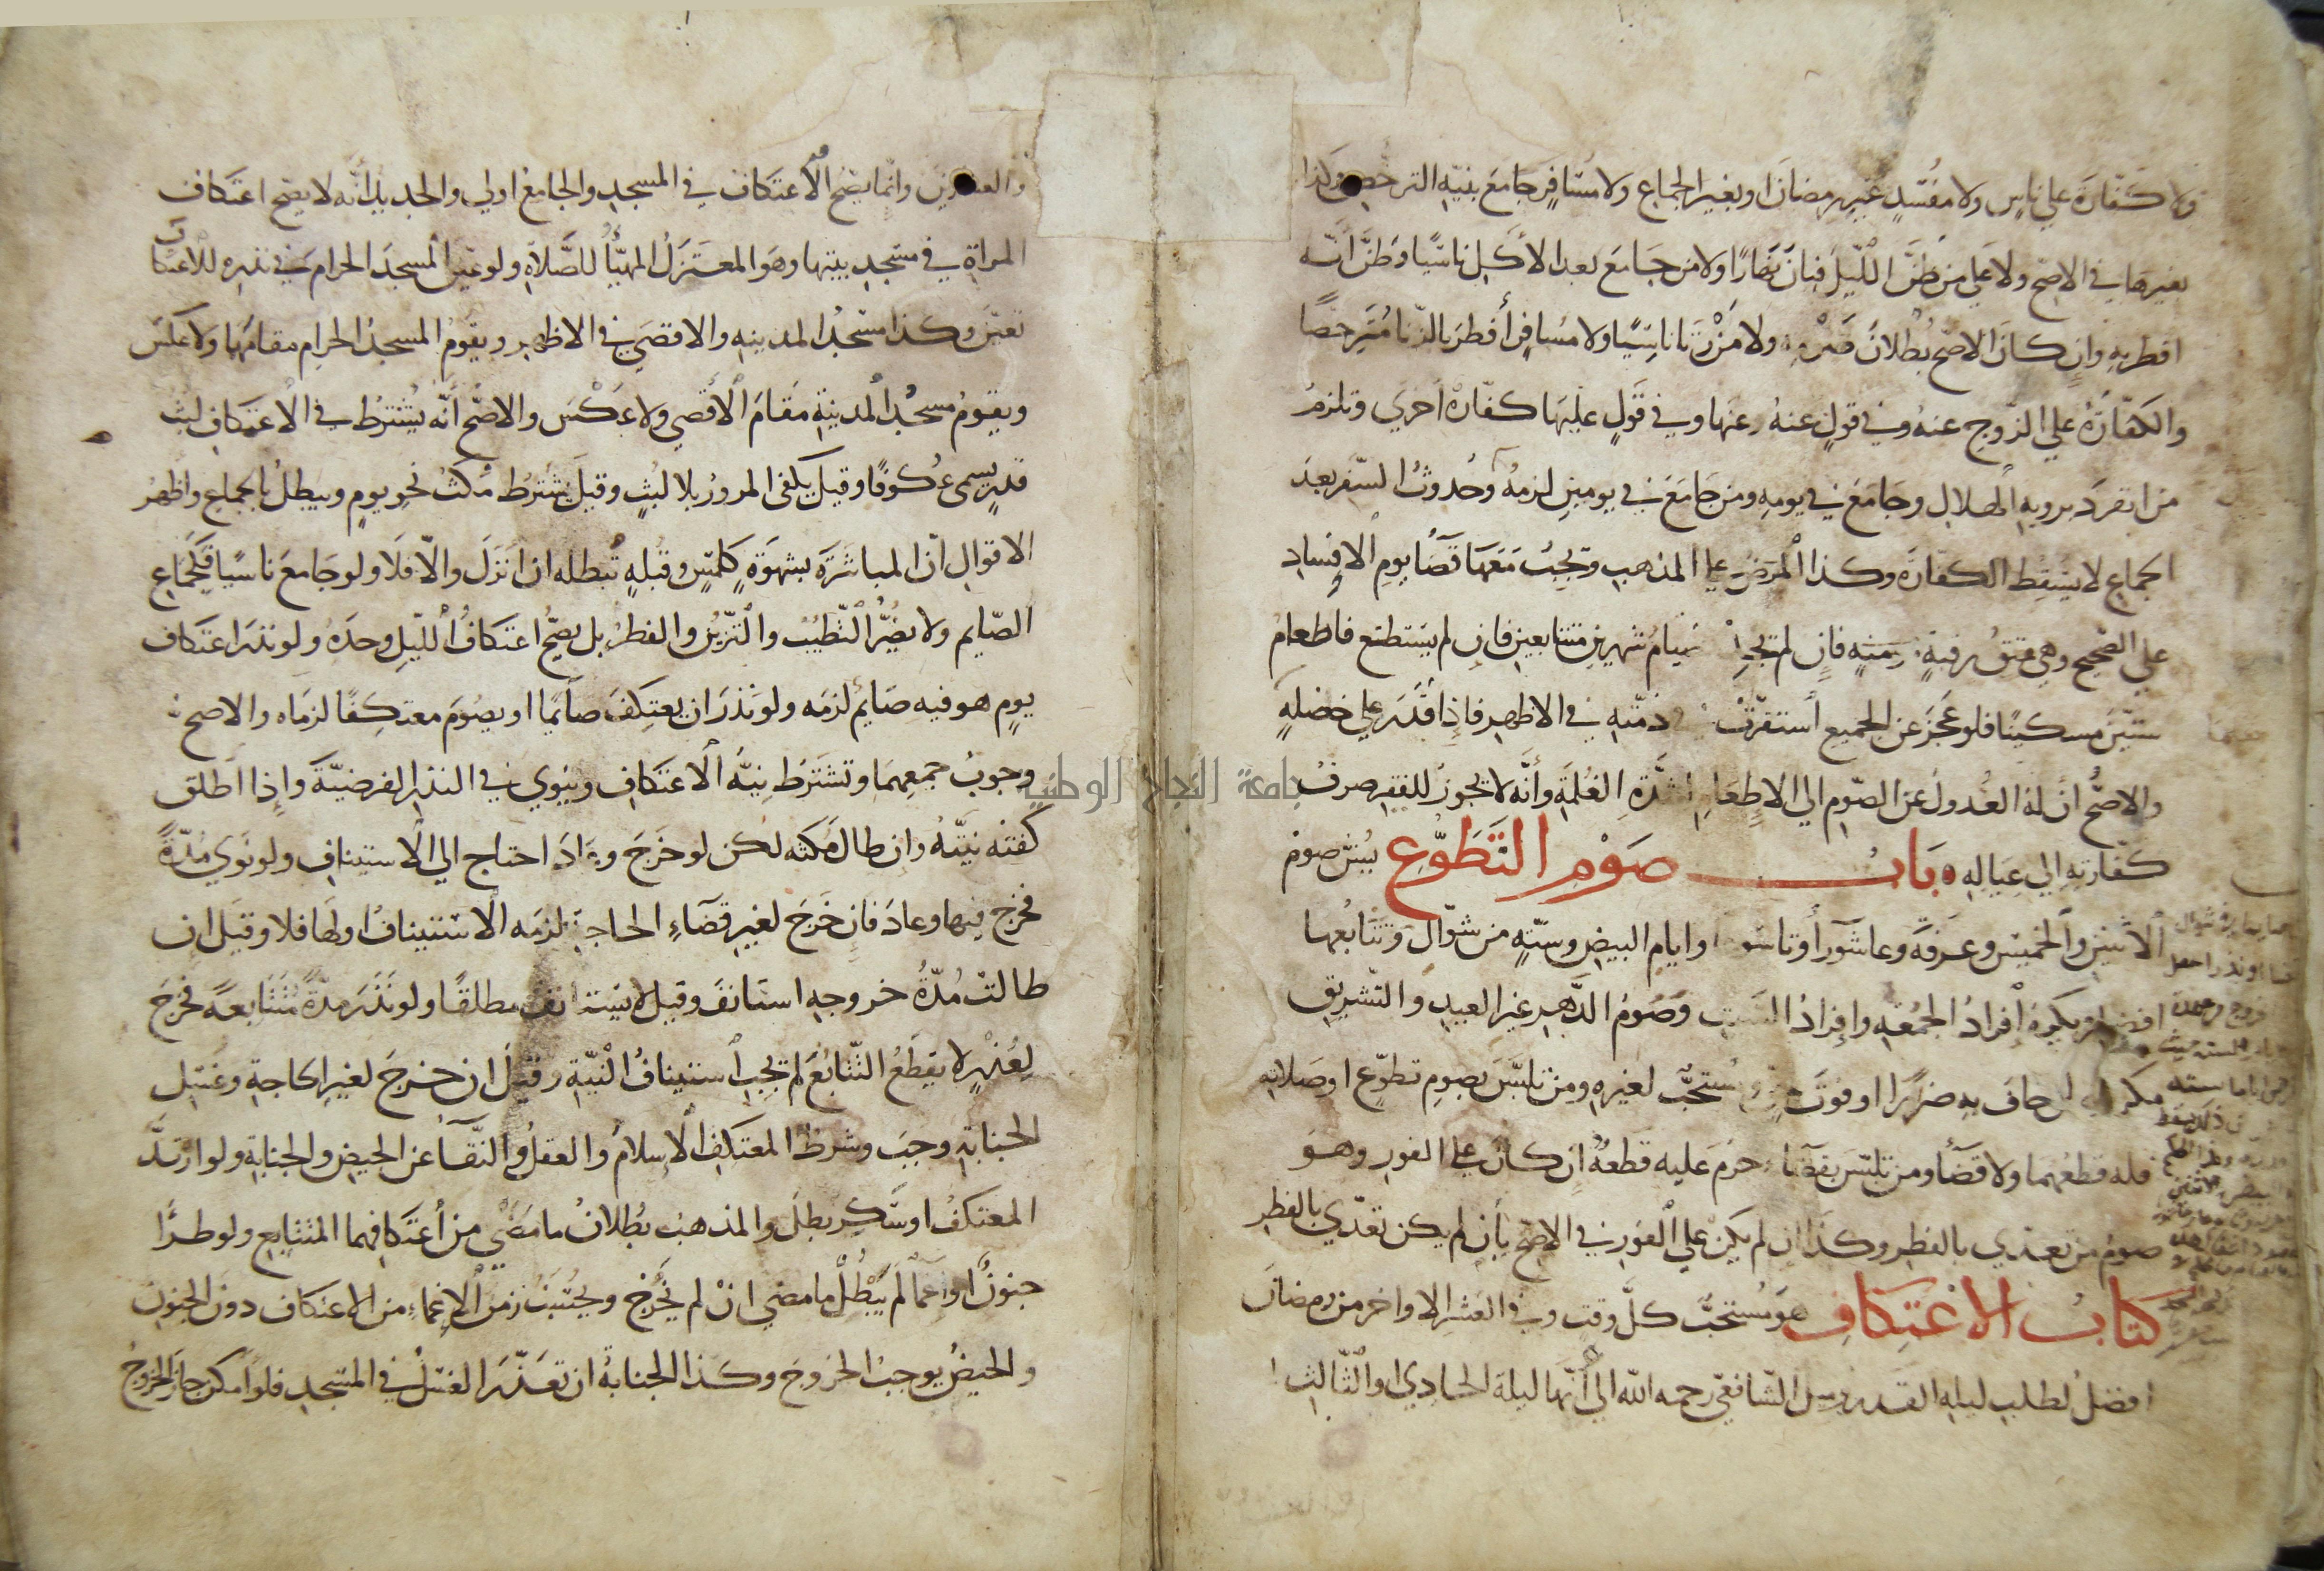 ولا كفارة علي ناس ولا مفسد غير رمضان او بغير الجماع ولا مسافر جامع بنية الترخص وكذا
بغيرها في الاصح ولا علي من ظن الليل فبان نهارا ولا من جامع بعد الاكل ناسيا وظن انه
افطر به وان كان الاصح بطلان صومه ولا من زنا ناسيا ولا مسافر أفطر بالزنا مترخصا
والكفارة علي الزوج عنه وفي قول عنه وعنها وفي قول عليها كفارة اخري وتلزم
من انفرد بروية الهلال وجامع في يومه ومن جامع في يومين لزمه وحدوث السفر بعد
الجماع لا يسقط الكفارة وكذا المرض علي المذهب وتجب معها قضا يوم الافساد
علي الصحيح وهي عتق رقبة مومنة فان لم تجد صيام شهرين متتابعين فان لم يستطع فاطعام
ستين مسكينا فلو عجز عن الجميع استقرت في ذمته في الاظهر فاذا قدر علي خصلة
والاصح ان له العدول عن الصوم الي الاطعام لشدة الغلمة وأنه لا تجوز للفقير صرف
كفارته الي عياله باب صوم التطوع يسن صوم
الاثنين والخميس وعرفة وعاشورا وتاسوعا وايام البيض وستة من شوال وتتابعها
افضل ويكره إفراد الجمعة وإفراد السبت وصوم الدهر غير العيد والتشريق
مكروه لمن خاف به ضررا او فوت حق ومستحب لغيره ومن تلبس بصوم تطوع او صلاته
فله قطعهما ولا قضا ومن تلبس بقضاء حرم عليه قطعه ان كان علي الفور وهو
صوم من تعدي بالفطر وكذا ان لم يكن علي الفور في الاصح بأن لم يكن تعدي بالفطر
كتاب الاعتكاف هو مستحب كل وقت وفي العشر الاواخر من رمضان
افضل لطلب ليلة القدر وميل الشافعي رحمه الله الي أنها ليلة الحادي او الثالث
والعشرين وانما يصح الاعتكاف في المسجد والجامع اولي والجديد أنه لا يصح اعتكاف
المراة في مسجد بيتها وهو المعتزل المهيأ للصلاة ولو عين المسجد الحرام في نذره للاعتكاف
تعين وكذا مسجد المدينة والاقصي في الاظهر ويقوم المسجد الحرام مقامها ولا عكس
ويقوم مسجد المدينة مقام الاقصي ولا عكس والاصح أنه يشترط في الاعتكاف لبث
قدر يسمي عكوفا وقيل يكفي المرور بلا لبث وقيل يشترط مكث نحو يوم ويبطل بالجماع واظهر
الاقوال ان المباشرة بشهوة كلمس وقبلة تبطله ان انزل والا فلا ولو جامع ناسيا فكجماع
الصايم ولا يضر التطيب والتزين والفطر بل يصح اعتكاف الليل وحده ولو نذر اعتكاف
يوم هو فيه صايم لزمه ولو نذر ان يعتكف صائما او يصوم معتكفا لزماه والاصح
وجوب جمعهما وتشترط نية الاعتكاف وينوي في النذر الفرضية واذا اطلق
كفته نيته وان طال مكثه لكن لو خرج وعاد احتاج الي الاستيناف ولو نوي مدة
فخرج فيها وعاد فان خرج لغير قضاء الحاجة لزمه الاستيناف او لها فلا وقيل ان
طالت مدة خروجه استانف وقيل لا يستانف مطلقا ولو نذر مدة متتابعة فخرج
لعذر لا يقطع التتابع لم تجب استيناف النية وقيل ان خرج لغير الحاجة وغسل
الجنابة وجب وشرط المعتكف الاسلام والعقل والنقا عن الحيض والجنابة ولو ارتد
المعتكف او سكر بطل والمذهب بطلان ما مضي من اعتكافهما المتتابع ولو طرا
جنون او اغما لم يبطل ما مضي ان لم يخرج ويحسب زمن الاغماء من الاعتكاف دون الجنون
والحيض يوجب الخروج وكذا الجنابة ان تعذر الغسل في المسجد فلو امكن جاز الخروج
جامعة النجاح الوطنية